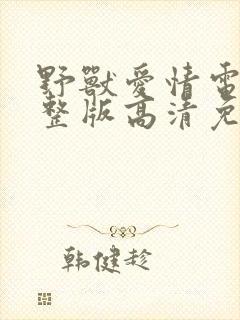 野獸愛情電
整版高清免
韩健趁